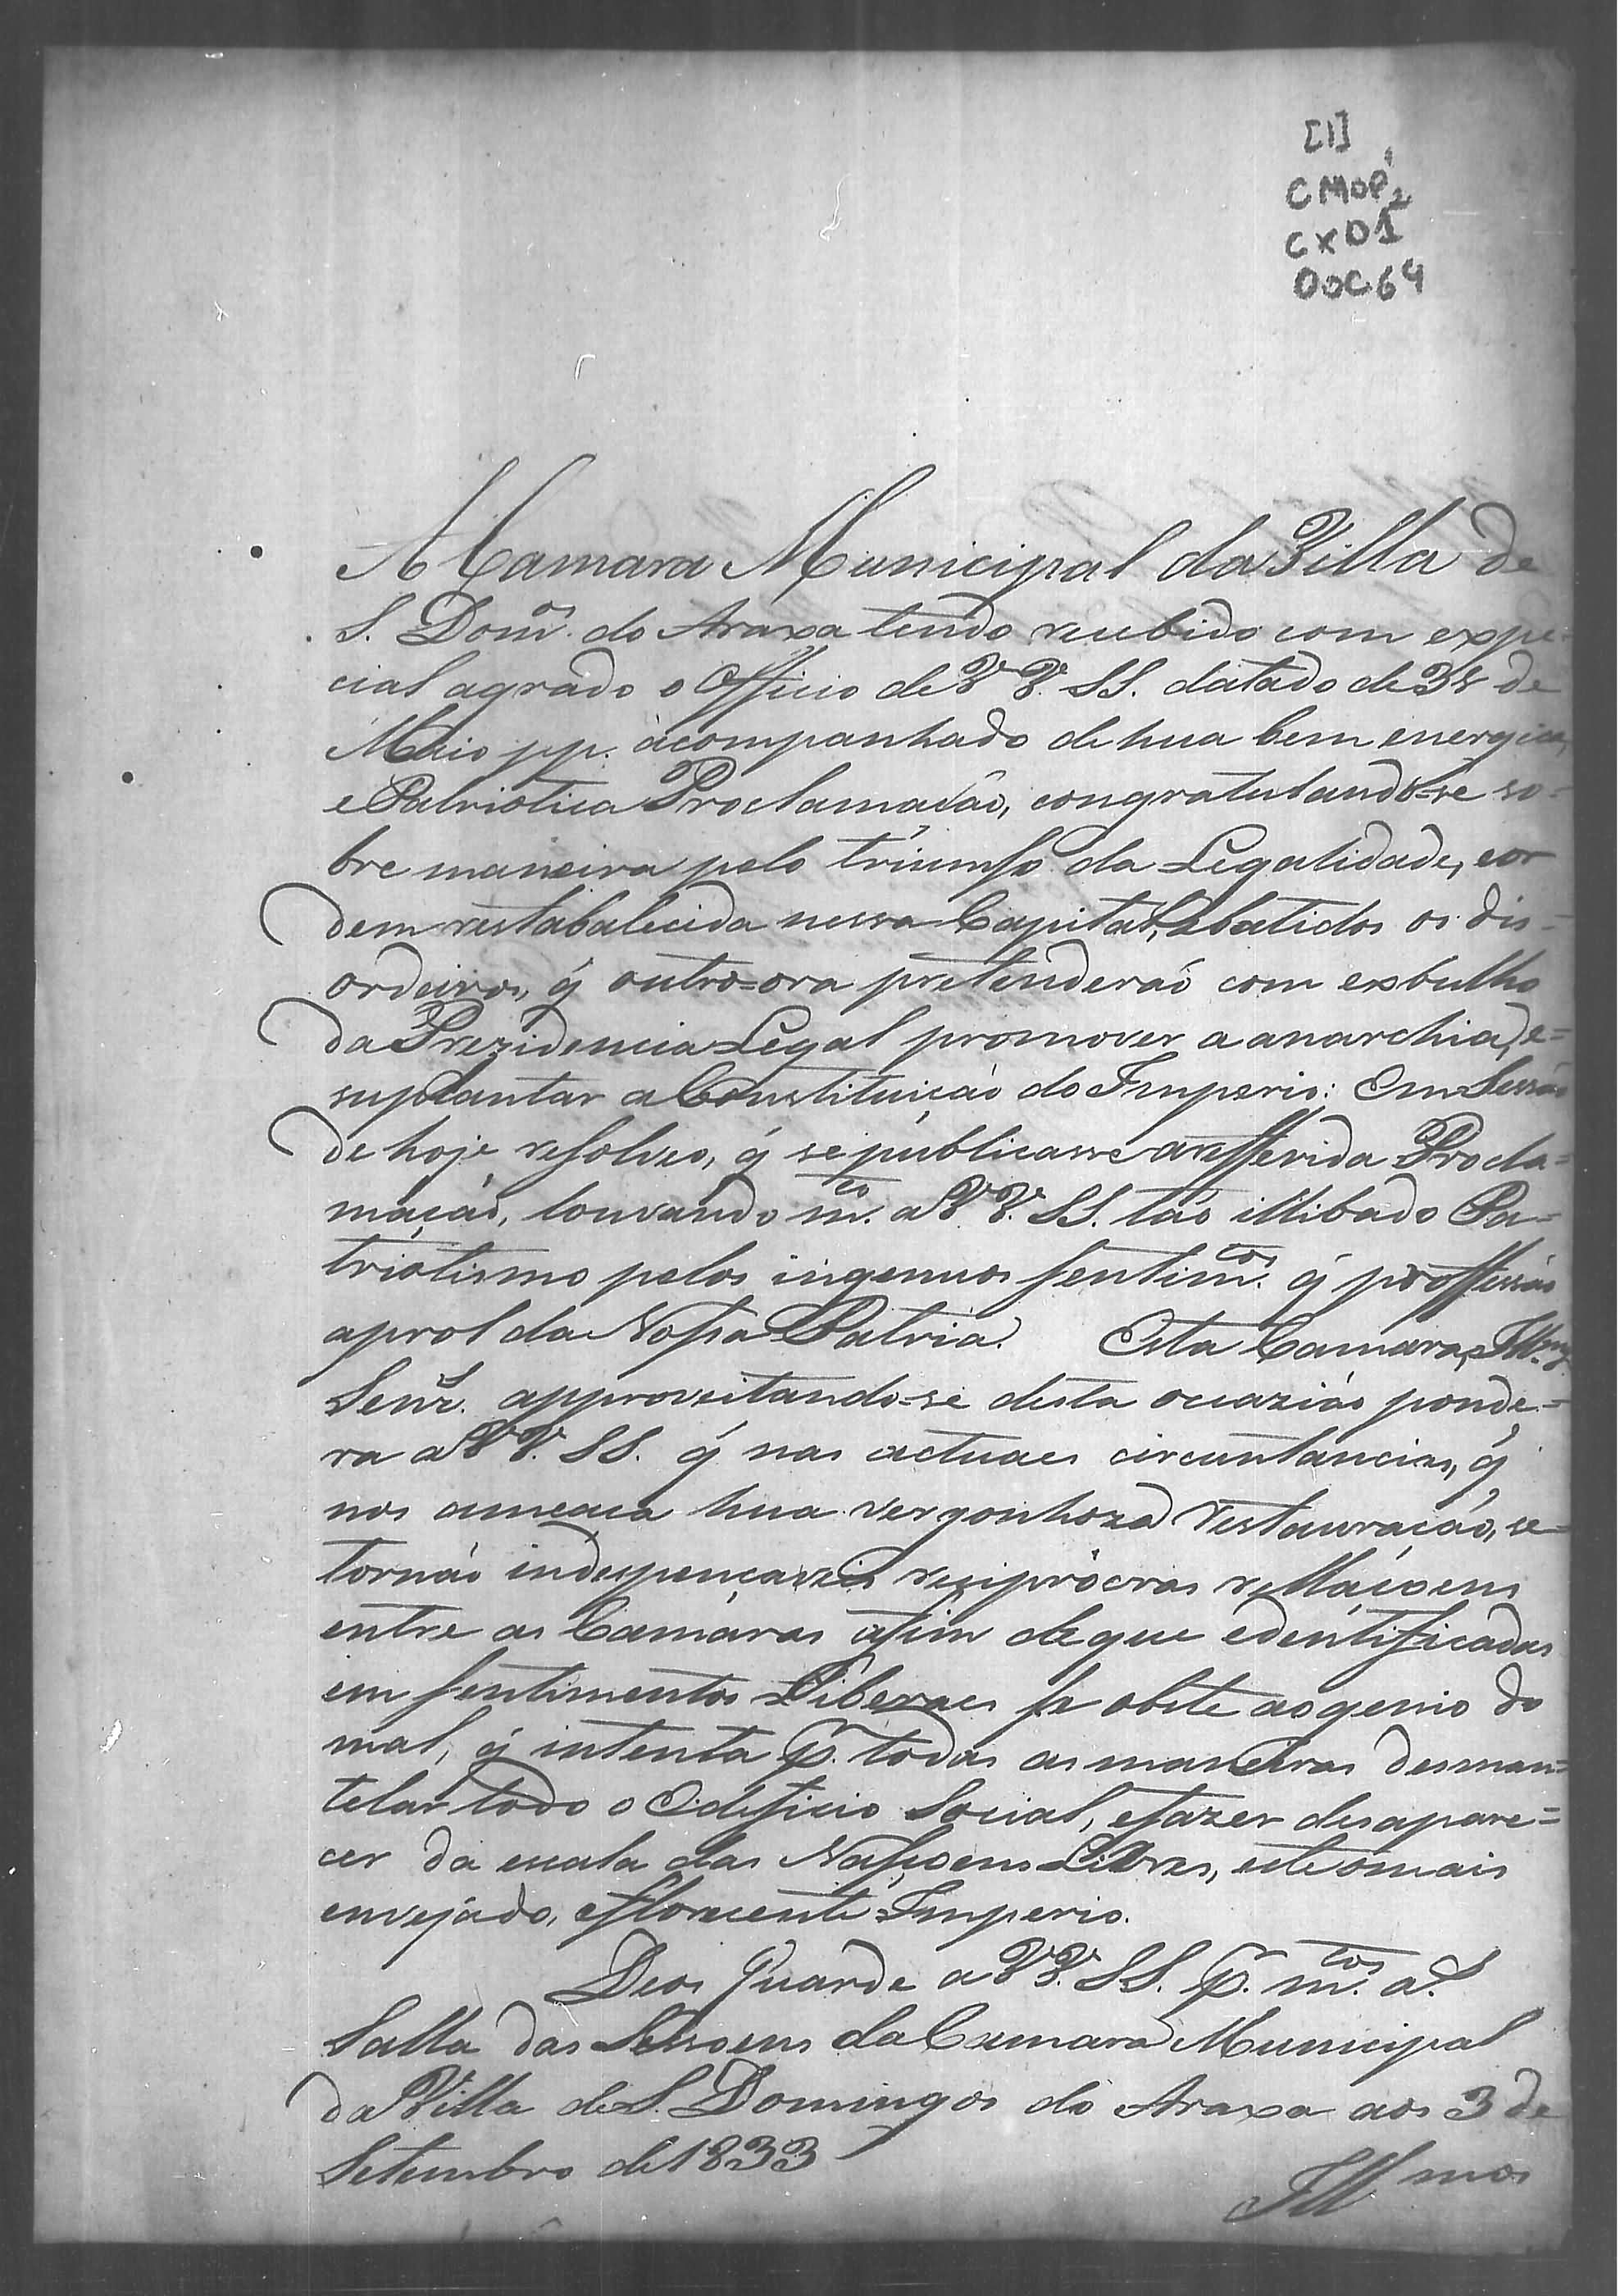 [1]
CMOP2
CX01
DOC64
A Camara Municipal da Villa de
S. Domos. do Araxa tendo recebido com expe=
cial agrado o Officio de VV. SS. datado de 31 de
Maio pp. acompanhado de hua bem energica,
e Patriotica Proclamação, congratulando=se so=
bre maneira pelo triumfo da Legalidade, e or
dem restabalecida nessa Capital, abatidos os dis=
ordeiros, q̃ outro=ora pretenderaõ com exbulho
da Prezidencia Legal promover a anarchia, e=
suplantar a Constituiçaõ do Imperio: Em Sessaõ
de hoje resolveo, q̃ se publicasse a refferida Procla=
maçaõ, louvando mto. a VV. SS. taõ illibado Pa=
triotismo pelos ingenuos sentimtos. q̃ proffessaõ
aprol da Nossa Patria. Esta Camara, Illmos.
Senrs. approveitando=se desta occaziaõ ponde=
ra a VV. SS. q̃ nas actuaes circunstancias, q̃
nos ameaça hua vergonhoza restauraçaõ, se=
tornaõ indespençaveis resiprocras rellaçoens
entre as Camaras afim deque edentificadas
em sentimentos Liberaes se obste ao genio do
mal, q̃ intenta pr. todas as maneiras desman=
telar todo o Edificio Social, e fazer desapare=
cer da escala das Nassoens Livres, este o mais
envejado, e florecente Imperio.
Deos Guarde a VV. SS. pr. mtos. as.
Salla das Sessoens da Camara Municipal
da Villa de S. Domingos do Araxa aos 3 de
Setembro de 1833
Illmos